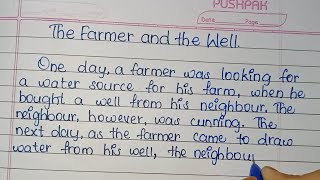 PUSHPAK
Date Page
The Farmer and the Well
One day, a farmer was looking for
a water source for his farm, when he
bought a well from his neighbour. The
neighbour, however, was cunning. The
next day, as the farmer came to draw
water from his well, the neighbou